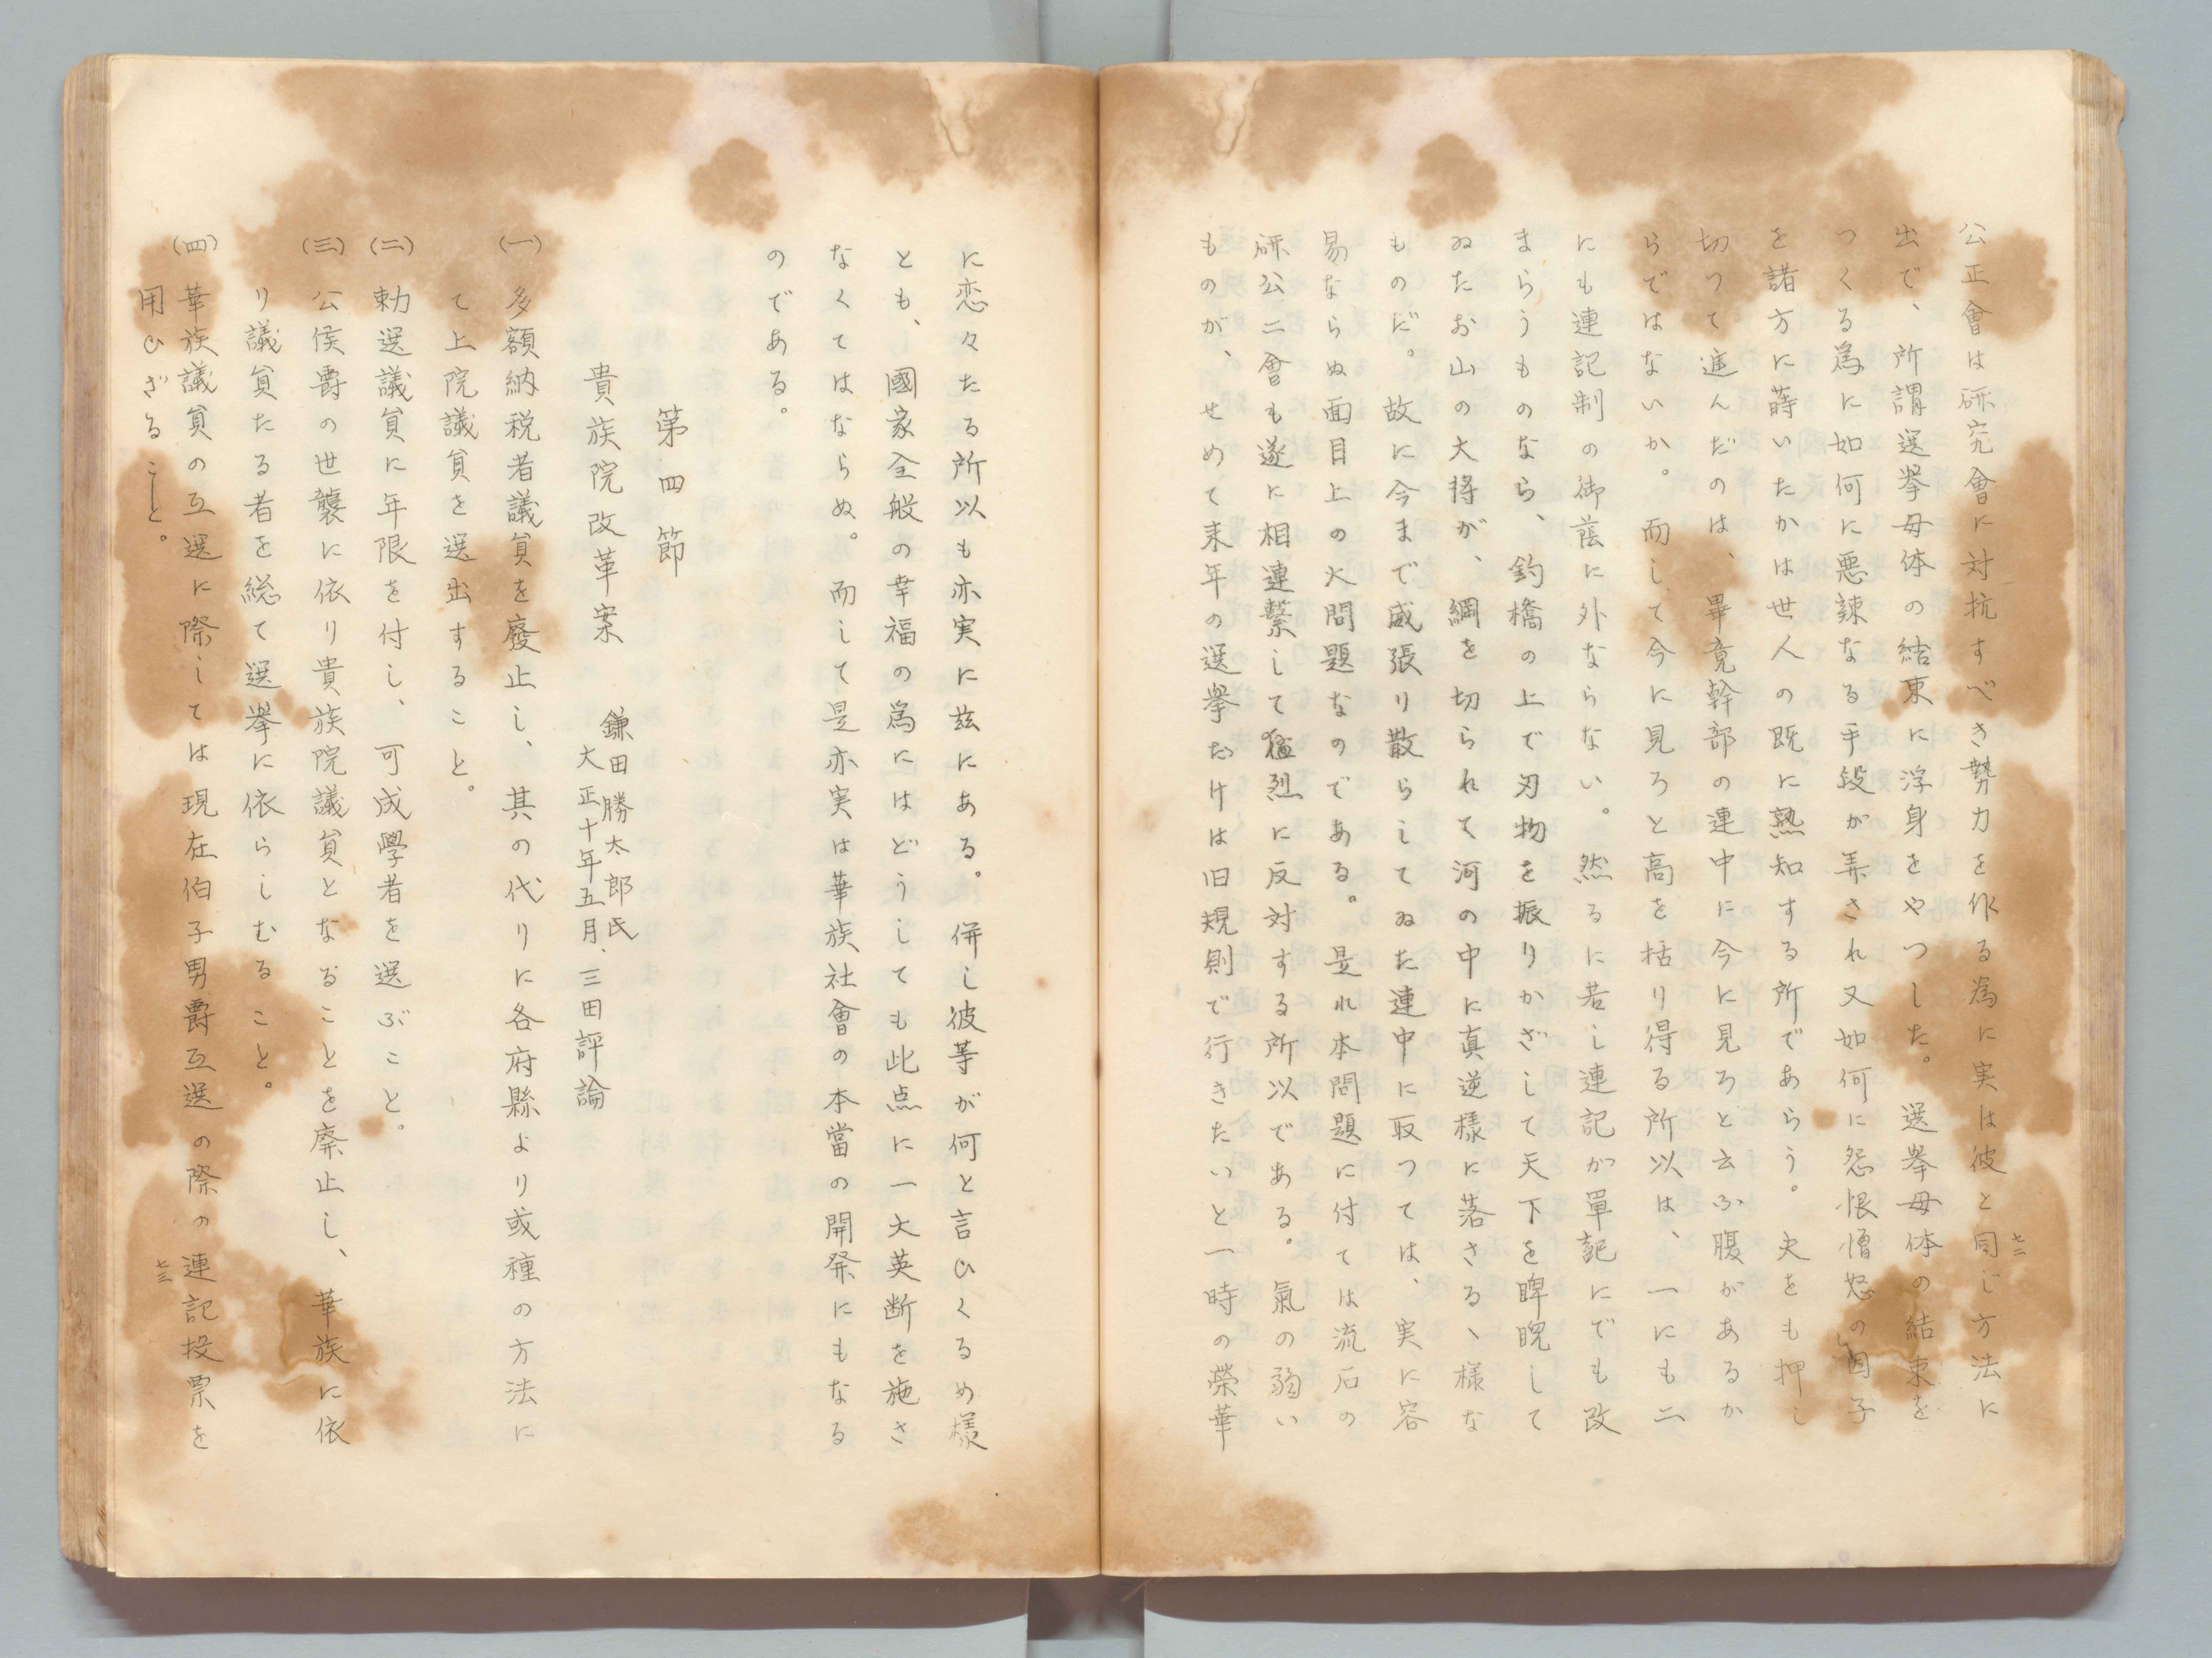 公正會は研究會に対抗すべき勢力を作る為に実は彼と同じ方法に
出で、所謂選挙母体の結束に浮身をやつした。選挙母体の結束を
つくる為に如何に悪辣なる手段が弄され又如何に怨恨憎怒の因子
を諸方に蒔いたかは世人の既に熟知する所であらう。夫をも押し
切つて進んだのは、畢竟幹部の連中に今に見ろと云ふ腹があるか
らではないか。而して今に見ろと高を括り得る所以は、一にも二
にも連記制の御蔭に外ならない。然るに若し連記が單記にでも改
まらうものなら、釣橋の上で刃物を振りかざして天下を睥睨して
ゐたお山の大将が、綱を切られて河の中に真逆様に落さるゝ様な
ものだ。故に今まで威張り散らしてゐた連中に取つては、実に容
易ならぬ面目上の大問題なのである。是れ本問題に付ては流石の
研公二會も遂に相連繋して猛烈に反対する所以である。氣の弱い
ものが、せめて来年の選挙だけは旧規則で行きたいと一時の榮華
七二
に恋々たる所以も亦実に茲にある。併し彼等が何と言ひくるめ様
とも、國家全般の幸福の為にはどうしても此点に一大英断を施さ
なくてはならぬ。而して是亦実は華族社會の本當の開発にもなる
のである。
第四節
貴族院改革案
鎌田勝太郎氏
大正十年五月、三田評論
(一) 多額納税者議員を廢止し、其の代りに各府縣より或種の方法に
て上院議員を選出すること。
(二) 勅選議員に年限を付し、可成學者を選ぶこと。
(三) 公侯爵の世襲に依り貴族院議員となることを廃止し、華族に依
り議員たる者を総て選挙に依らしむること。
(四) 華族議員の互選に際しては現在伯子男爵互選の際の連記投票を
用ひざること。
七三